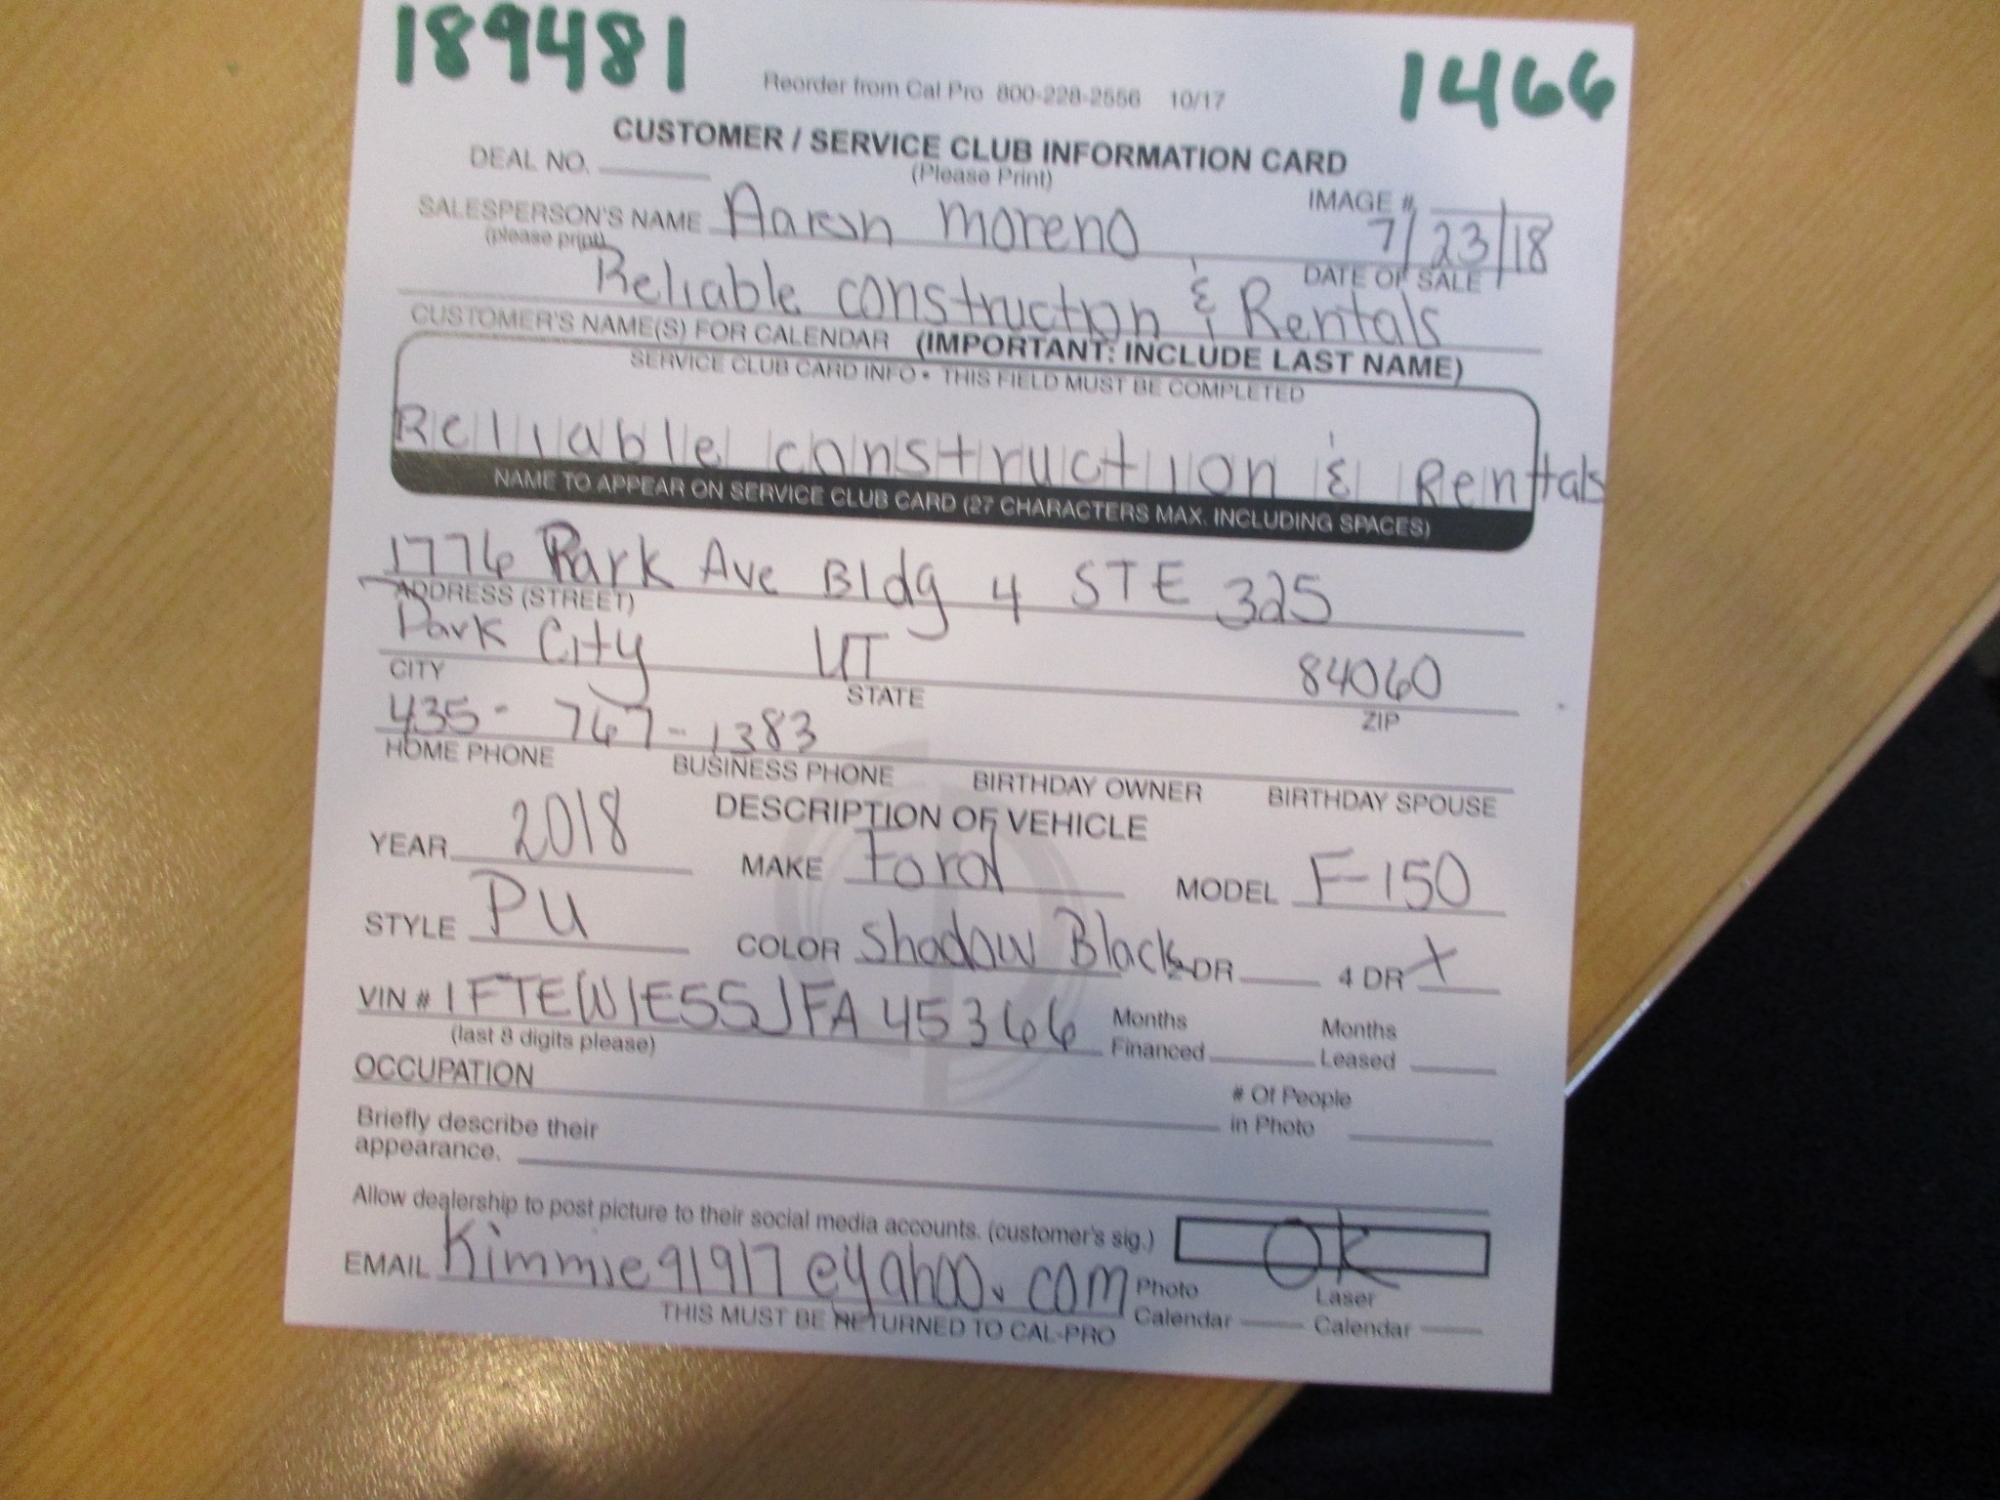 189481
1466
Reorder from Cal Pro 800-228-2556 10/17
CUSTOMER / SERVICE CLUB INFORMATION CARD
(Please Print)
DEAL NO.
IMAGE #
SALESPERSON'S NAME Aaron Moreno 7/23/18
(please print)
DATE OF SALE
Reliable construction & Rentals
CUSTOMER'S NAME(S) FOR CALENDAR (IMPORTANT: INCLUDE LAST NAME)
SERVICE CLUB CARD INFO • THIS FIELD MUST BE COMPLETED
Reliable construction & Rentals
NAME TO APPEAR ON SERVICE CLUB CARD (27 CHARACTERS MAX. INCLUDING SPACES)
1776 Park Ave Bldg 4 STE 325
ADDRESS (STREET)
Park City UT 84060
CITY STATE ZIP
435-767-1383
HOME PHONE BUSINESS PHONE BIRTHDAY OWNER BIRTHDAY SPOUSE
DESCRIPTION OF VEHICLE
YEAR 2018 MAKE Ford MODEL F-150
STYLE PU COLOR Shadow Black 2 DR 4 DR X
VIN # 1FTEW1E5SJFA45366 Months Financed Months Leased
(last 8 digits please)
OCCUPATION
# Of People in Photo
Briefly describe their
appearance.
Allow dealership to post picture to their social media accounts. (customer's sig.) OK
EMAIL Kimmie91917@yahoo.com Photo Calendar Laser Calendar
THIS MUST BE RETURNED TO CAL-PRO